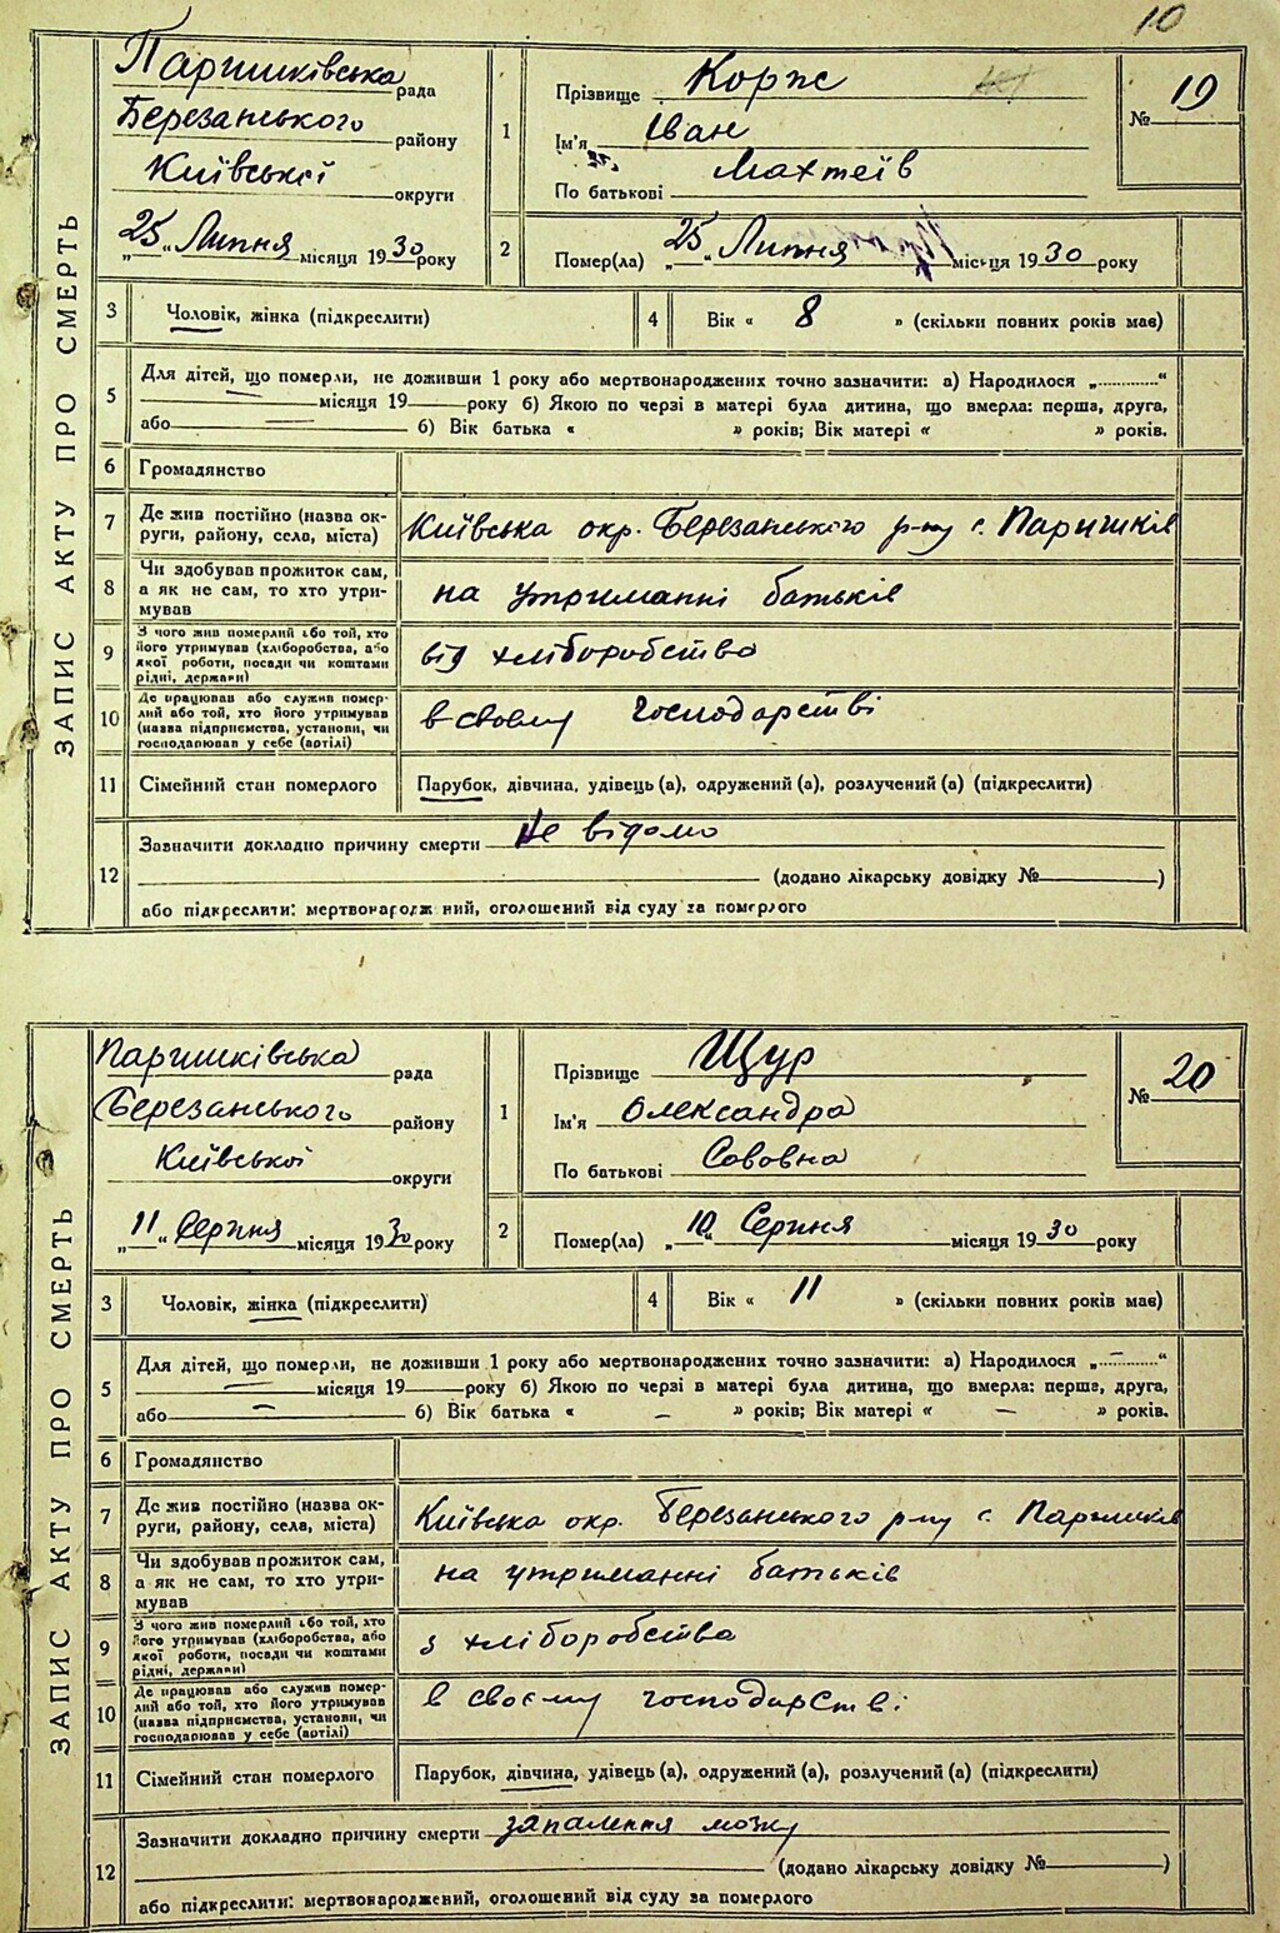 10
ЗАПИС АКТУ ПРО СМЕРТЬ
Паришківська рада
Березанського району
Київської округи
„25“ Липня місяця 1930 року
1
Прізвище Корж
Ім'я Іван
По батькові Махтеїв
№ 19
2
Помер(ла) „25“ Липня місяця 1930 року
3 Чоловік, жінка (підкреслити)
4 Вік « 8 » (скільки повних років має)
5
Для дітей, що померли, не доживши 1 року або мертвонароджених точно зазначити: а) Народилося „............“
— місяця 19 року б) Якою по черзі в матері була дитина, що вмерла: перша, друга,
або — б) Вік батька « » років; Вік матері « » років.
6 Громадянство
7 Де жив постійно (назва ок-
руги, району, села, міста)
Київська окр. Березанського р-ну с. Паришків
8 Чи здобував прожиток сам,
а як не сам, то хто утри-
мував
на утриманні батьків
9 З чого жив померлий або той, хто
його утримував (хліборобства, або
якої роботи, посади чи коштами
рідні, держави)
від хліборобства
10 Де працював або служив помер-
лий або той, хто його утримував
(назва підприємства, установи, чи
господарював у себе (артілі)
в своєму господарстві
11 Сімейний стан померлого
Парубок, дівчина, удівець(а), одружений(а), розлучений(а) (підкреслити)
12 Зазначити докладно причину смерти Не відомо
(додано лікарську довідку № )
або підкреслити: мертвонароджений, оголошений від суду за померлого
ЗАПИС АКТУ ПРО СМЕРТЬ
Паришківська рада
Березанського району
Київської округи
„11“ Серпня місяця 1930 року
1
Прізвище Щур
Ім'я Олександра
По батькові Сововна
№ 20
2
Помер(ла) „10“ Серпня місяця 1930 року
3 Чоловік, жінка (підкреслити)
4 Вік « 11 » (скільки повних років має)
5
Для дітей, що померли, не доживши 1 року або мертвонароджених точно зазначити: а) Народилося „............“
— місяця 19 року б) Якою по черзі в матері була дитина, що вмерла: перша, друга,
або — б) Вік батька « — » років; Вік матері « — » років.
6 Громадянство
7 Де жив постійно (назва ок-
руги, району, села, міста)
Київська окр. Березанського р-ну с. Паришків
8 Чи здобував прожиток сам,
а як не сам, то хто утри-
мував
на утриманні батьків
9 З чого жив померлий або той, хто
його утримував (хліборобства, або
якої роботи, посади чи коштами
рідні, держави)
з хліборобства
10 Де працював або служив помер-
лий або той, хто його утримував
(назва підприємства, установи, чи
господарював у себе (артілі)
в своєму господарстві
11 Сімейний стан померлого
Парубок, дівчина, удівець(а), одружений(а), розлучений(а) (підкреслити)
12 Зазначити докладно причину смерти запалення мозку
(додано лікарську довідку № )
або підкреслити: мертвонароджений, оголошений від суду за померлого